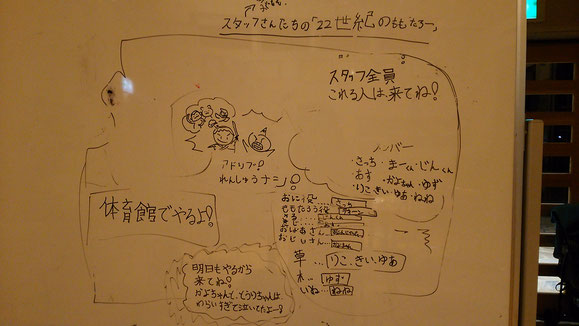 スタッフさんたちの「22世紀のももたろー」
スタッフ全員
これる人は来てね!
メンバー
・さっち・まーくん・じんくん
・あす・かよちゃん・ゆず
・りこ・きい・ゆあ・ねね
アドリブ!
れんしゅうナシ!
体育館でやるよ!
おに役…さっち
ももたろう役
おばあさん
おじいさん
草…りこ、きい、ゆあ
木…ゆず
いぬ…ねね
明日もやるから
来てね!
かよちゃんと、とうりちゃんは、
わらいすぎて泣いてたよー!